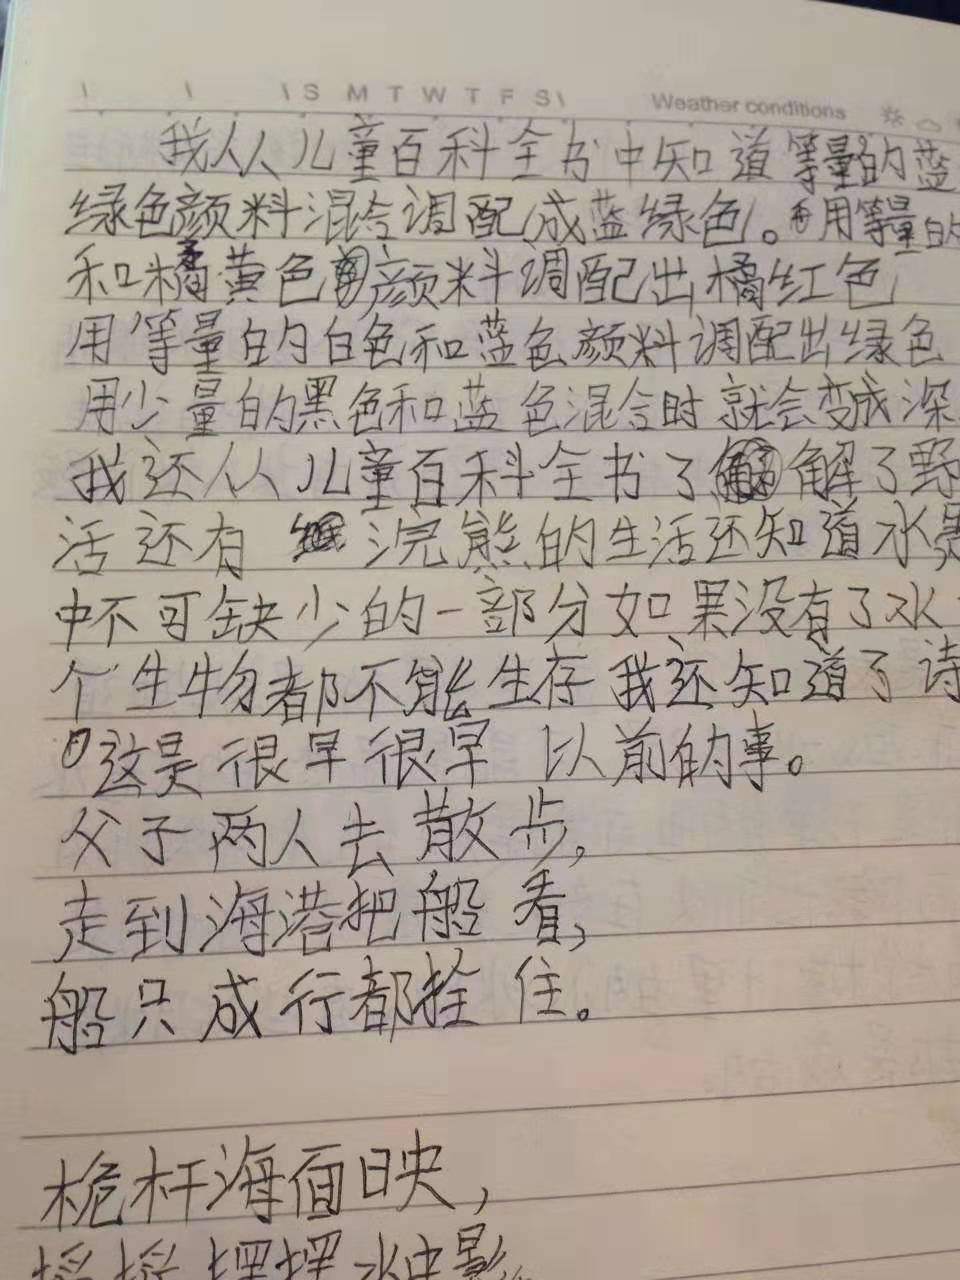 S M T W T F S Weather conditions
我从儿童百科全书中知道等量的蓝
绿色颜料混合调配成蓝绿色。用等量的
和橘黄色颜料调配出橘红色
用等量的白色和蓝色颜料调配出绿色
用少量的黑色和蓝色混合时就会变成深
我还从儿童百科全书了解了野
活还有浣熊的生活还知道水是
中不可缺少的一部分如果没有了水
个生物都不能生存我还知道了诗
这是很早很早以前的事。
父子两人去散步,
走到海港把船看,
船只成行都拴住。
桅杆海面映,
摇摇摆摆水中影